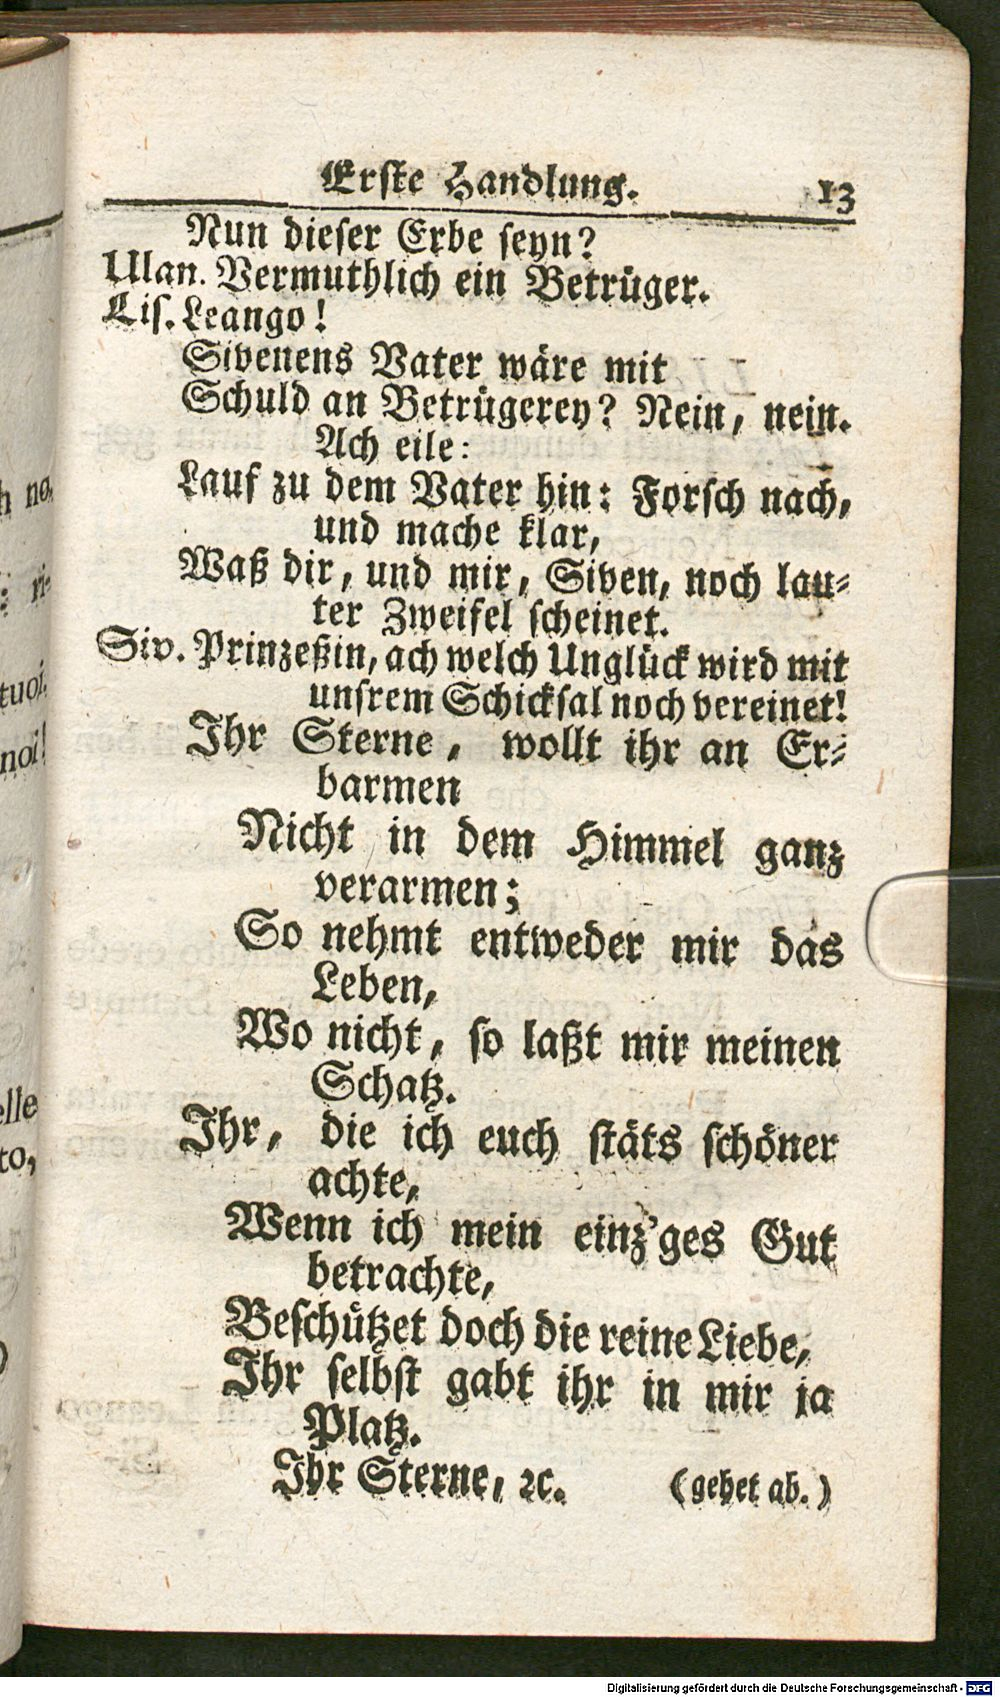 h no,
: ri-
tuoi,
noi!
elle
to,
Erste Handlung. 13
Nun dieser Erbe seyn?
Ulan. Vermuthlich ein Betrüger.
Lis. Leango!
Sivenens Vater wäre mit
Schuld an Betrügerey? Nein, nein.
Ach eile:
Lauf zu dem Vater hin: Forsch nach,
und mache klar,
Waß dir, und mir, Siven, noch lau-
ter Zweifel scheinet.
Siv. Prinzeßin, ach welch Unglück wird mit
unsrem Schicksal noch vereinet!
Ihr Sterne, wollt ihr an Er-
barmen
Nicht in dem Himmel ganz
verarmen;
So nehmt entweder mir das
Leben,
Wo nicht, so laßt mir meinen
Schatz.
Ihr, die ich euch stäts schöner
achte,
Wenn ich mein einz'ges Gut
betrachte,
Beschützet doch die reine Liebe,
Ihr selbst gabt ihr in mir ja
Platz.
Ihr Sterne, ꝛc. (gehet ab.)
Digitalisierung gefördert durch die Deutsche Forschungsgemeinschaft - DFG